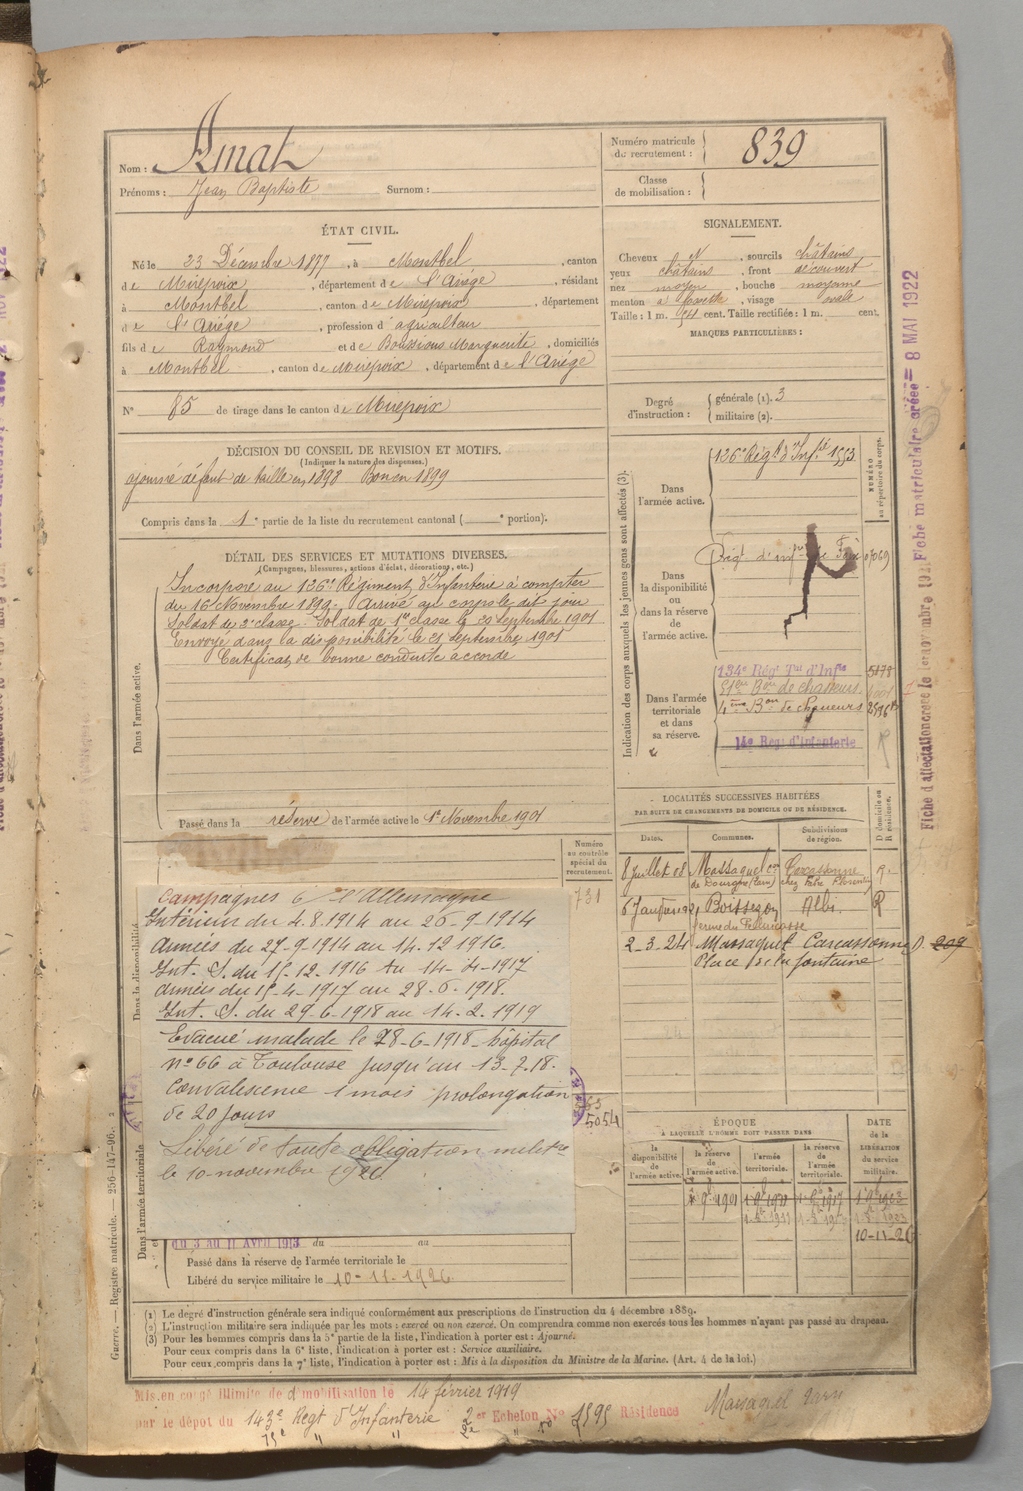 Nom : Amat
Prénoms : Jean Baptiste Surnom :
Numéro matricule du recrutement : 839
Classe de mobilisation :
ÉTAT CIVIL.
Né le 23 Décembre 1877, à Montbel, canton
de Mirepoix, département de l'Ariége, résidant
à Montbel, canton de Mirepoix, département
de l'Ariége, profession d'agriculteur
fils de Raymond et de Boussious Marguerite, domiciliés
à Montbel, canton de Mirepoix, département de l'Ariége
N° 85 de tirage dans le canton de Mirepoix
SIGNALEMENT.
Cheveux et, sourcils châtains
yeux châtains, front découvert
nez moyen, bouche moyenne
menton à fossette, visage ovale
Taille : 1 m. 54 cent. Taille rectifiée : 1 m. cent.
MARQUES PARTICULIÈRES :
Degré d'instruction : générale (1). 3
militaire (2).
DÉCISION DU CONSEIL DE REVISION ET MOTIFS.
(Indiquer la nature des dispenses.)
ajourné défaut de taille en 1898 Bon en 1899
Compris dans la 1e partie de la liste du recrutement cantonal ( e portion).
DÉTAIL DES SERVICES ET MUTATIONS DIVERSES.
(Campagnes, blessures, actions d'éclat, décorations, etc.)
Dans l'armée active.
Incorporé au 126e Régiment d'Infanterie à compter
du 16 Novembre 1899. Arrivé au corps le dit jour
Soldat de 2e classe. Soldat de 1e classe le 20 Septembre 1901
Envoyé dans la disponibilité le 21 Septembre 1901
Certificat de bonne conduite accordé
Passé dans la réserve de l'armée active le 1er Novembre 1901
Indication des corps auxquels les jeunes gens sont affectés (3).
NUMÉRO au répertoire du corps.
Dans l'armée active.
126e Régt d'Infie 1553
Dans la disponibilité ou dans la réserve de l'armée active.
Régt d'infie de Foix 07069
Dans l'armée territoriale et dans sa réserve.
134e Régt Tal d'Infie 5178
de chasseurs.
14e Régt d'Infanterie
LOCALITÉS SUCCESSIVES HABITÉES
PAR SUITE DE CHANGEMENTS DE DOMICILE OU DE RÉSIDENCE.
Dates. Communes. Subdivisions de région. D domicile ou R résidence.
8 Juillet 08 Massaguel con de Dourgne (Tarn) Carcassonne R.
6 Janvier 1921 Boissezon Albi. R
2-3-24 Massaguel Carcassonne D 209
Place de la fontaine
Numéro au contrôle spécial du recrutement.
731
Dans la disponibilité
Campagnes c/ l'Allemagne
Intérieur du 4.8.1914 au 26-9-1914
Armées du 27-9-1914 au 14.12 1916.
Int. S. du 15.12.1916 au 14-4-1917
Armées du 15-4-1917 au 28-6-1918.
Int. S. du 29-6-1918 au 14-2-1919
Evacué malade le 28-6-1918 hôpital
n° 66 à Toulouse jusqu'au 13-7-18.
Convalescence 1 mois prolongation
de 20 jours
Libéré de toute obligation militre
le 10 novembre 1926.
5054
Dans l'armée territoriale
du 3 au 11 Avril 1913 du au
Passé dans la réserve de l'armée territoriale le
Libéré du service militaire le 10-11-1926
ÉPOQUE
À LAQUELLE L'HOMME DOIT PASSER DANS
la disponibilité de l'armée active.
la réserve de l'armée active.
l'armée territoriale.
la réserve de l'armée territoriale.
DATE de la LIBÉRATION du service militaire.
10-11-26
(1) Le degré d'instruction générale sera indiqué conformément aux prescriptions de l'instruction du 4 décembre 1889.
(2) L'instruction militaire sera indiquée par les mots : exercé ou non exercé. On comprendra comme non exercés tous les hommes n'ayant pas passé au drapeau.
(3) Pour les hommes compris dans la 5e partie de la liste, l'indication à porter est : Ajourné.
Pour ceux compris dans la 6e liste, l'indication à porter est : Service auxiliaire.
Pour ceux compris dans la 7e liste, l'indication à porter est : Mis à la disposition du Ministre de la Marine. (Art. 4 de la loi.)
Guerre. — Registre matricule. — 256-147-96. 2
Mis en congé illimité de démobilisation le 14 février 1919
par le dépôt du 143e Regt d'Infanterie 2e Echelon N° 1595 Résidence Massaguel Tarn
15e " "
Fiche matriculaire créée = 8 MAI 1922